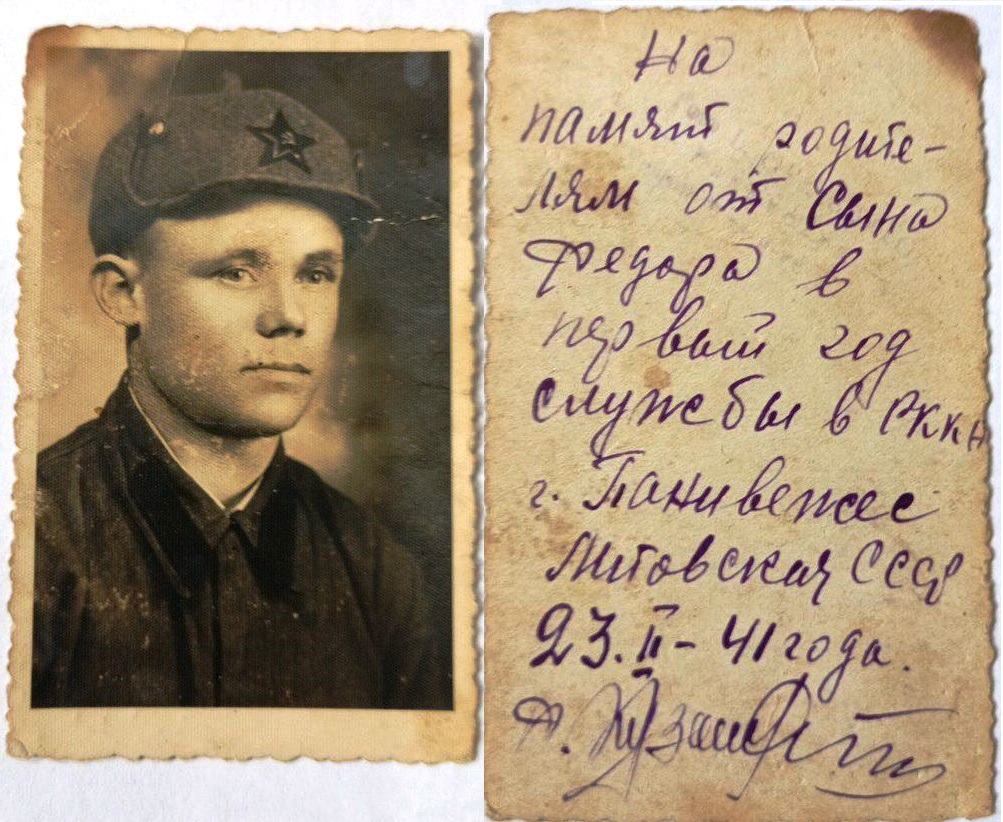 На
памят родите-
лям от Сына
Федора в
первый год
службы в РККА
г. Паневежес
Литовская СССР
23.II-41 года.